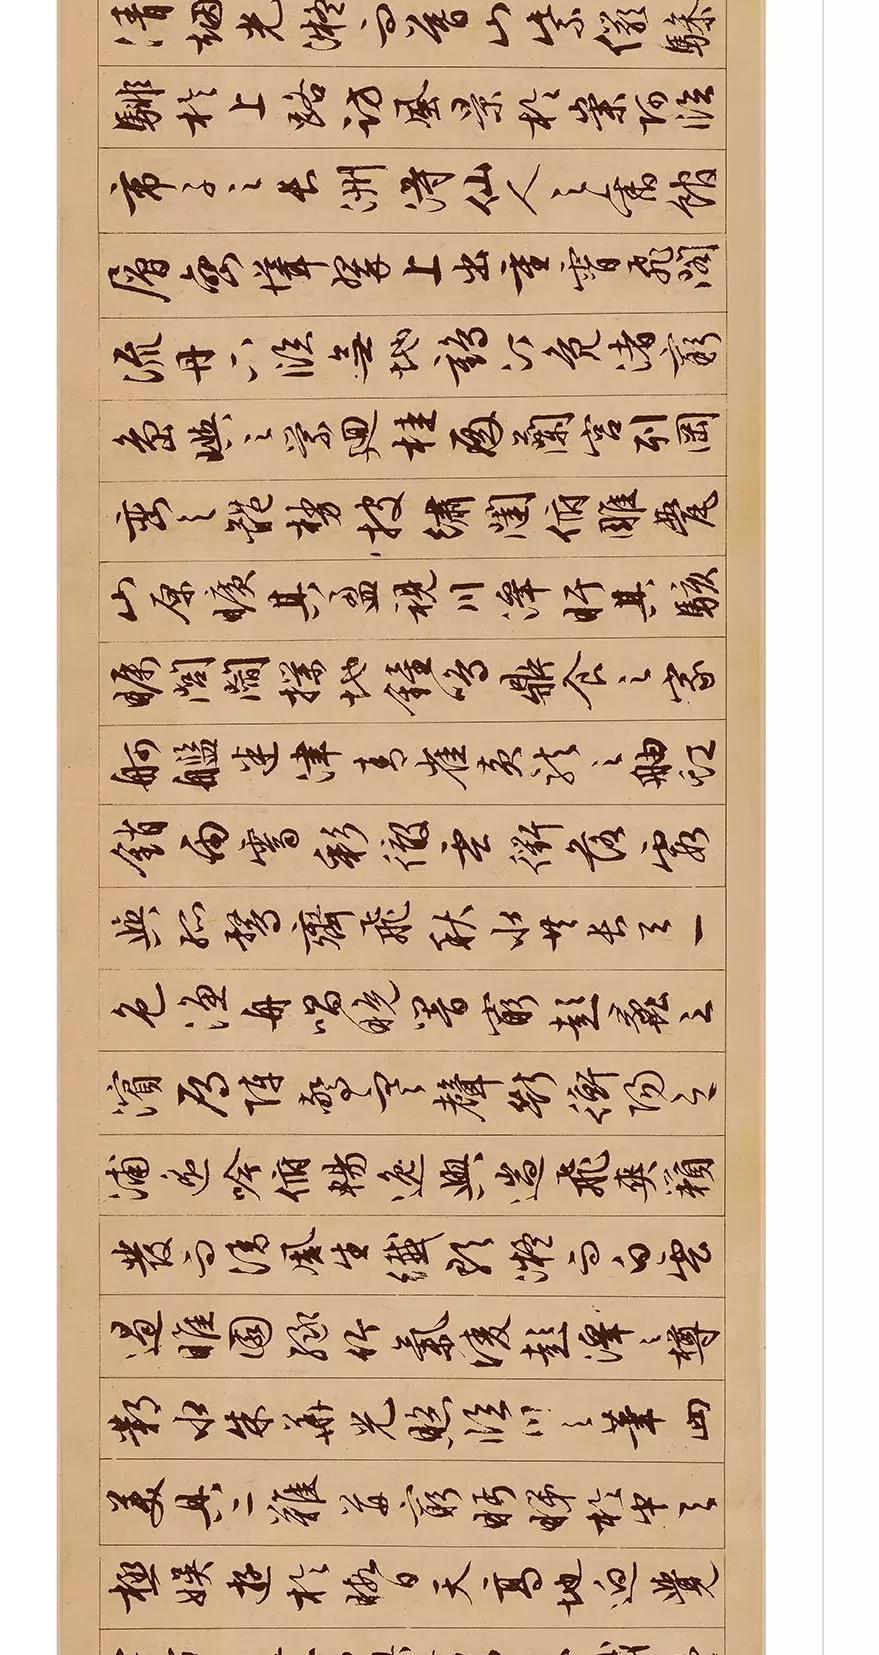 清烟光凝而暮山紫儼驂
騑於上路訪風景於崇阿臨
帝子之長洲得仙人之舊館
層巒聳翠上出重霄飛閣
流丹下臨無地鶴汀鳧渚窮
島嶼之縈迴桂殿蘭宮列岡
巒之體勢披繡闥俯雕甍
山原曠其盈視川澤盱其駭
矚閭閻撲地鐘鳴鼎食之家
舸艦迷津青雀黃龍之舳虹
銷雨霽彩徹雲衢落霞
與孤鶩齊飛秋水共長天一
色漁舟唱晚響窮彭蠡之
濱雁陣驚寒聲斷衡陽之
浦遙吟俯暢逸興遄飛爽籟
發而清風生纖歌凝而白雲
遏睢園綠竹氣凌彭澤之樽
鄴水朱華光照臨川之筆四
美具二難並窮眄睇於中天
極娛遊於暇日天高地迥覺